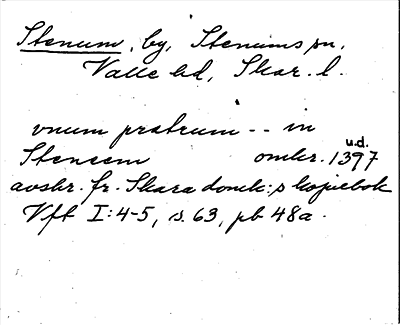 Stenum, by, Stenums sn,
Valle hd, Skar. l.
vnum pratrum -- in
Steneem omkr. 1397 u.d.
avskr. fr. Skara domk:s kopiebok
Vft I:4-5, s. 63, pb 48a.